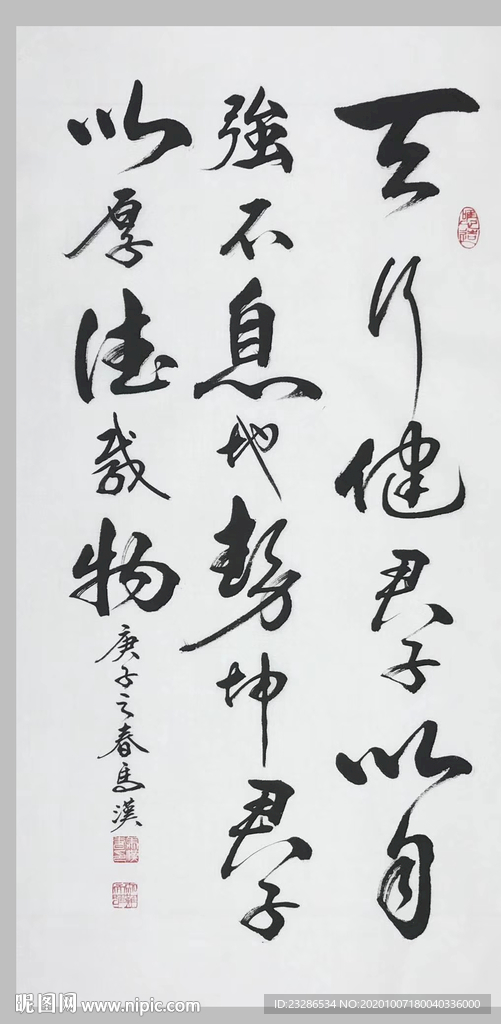 天行健君子以自
強不息地勢坤君子
以厚德載物
庚子之春馬漢
昵图网 www.nipic.com
ID:23286534 NO:20201007180040336000